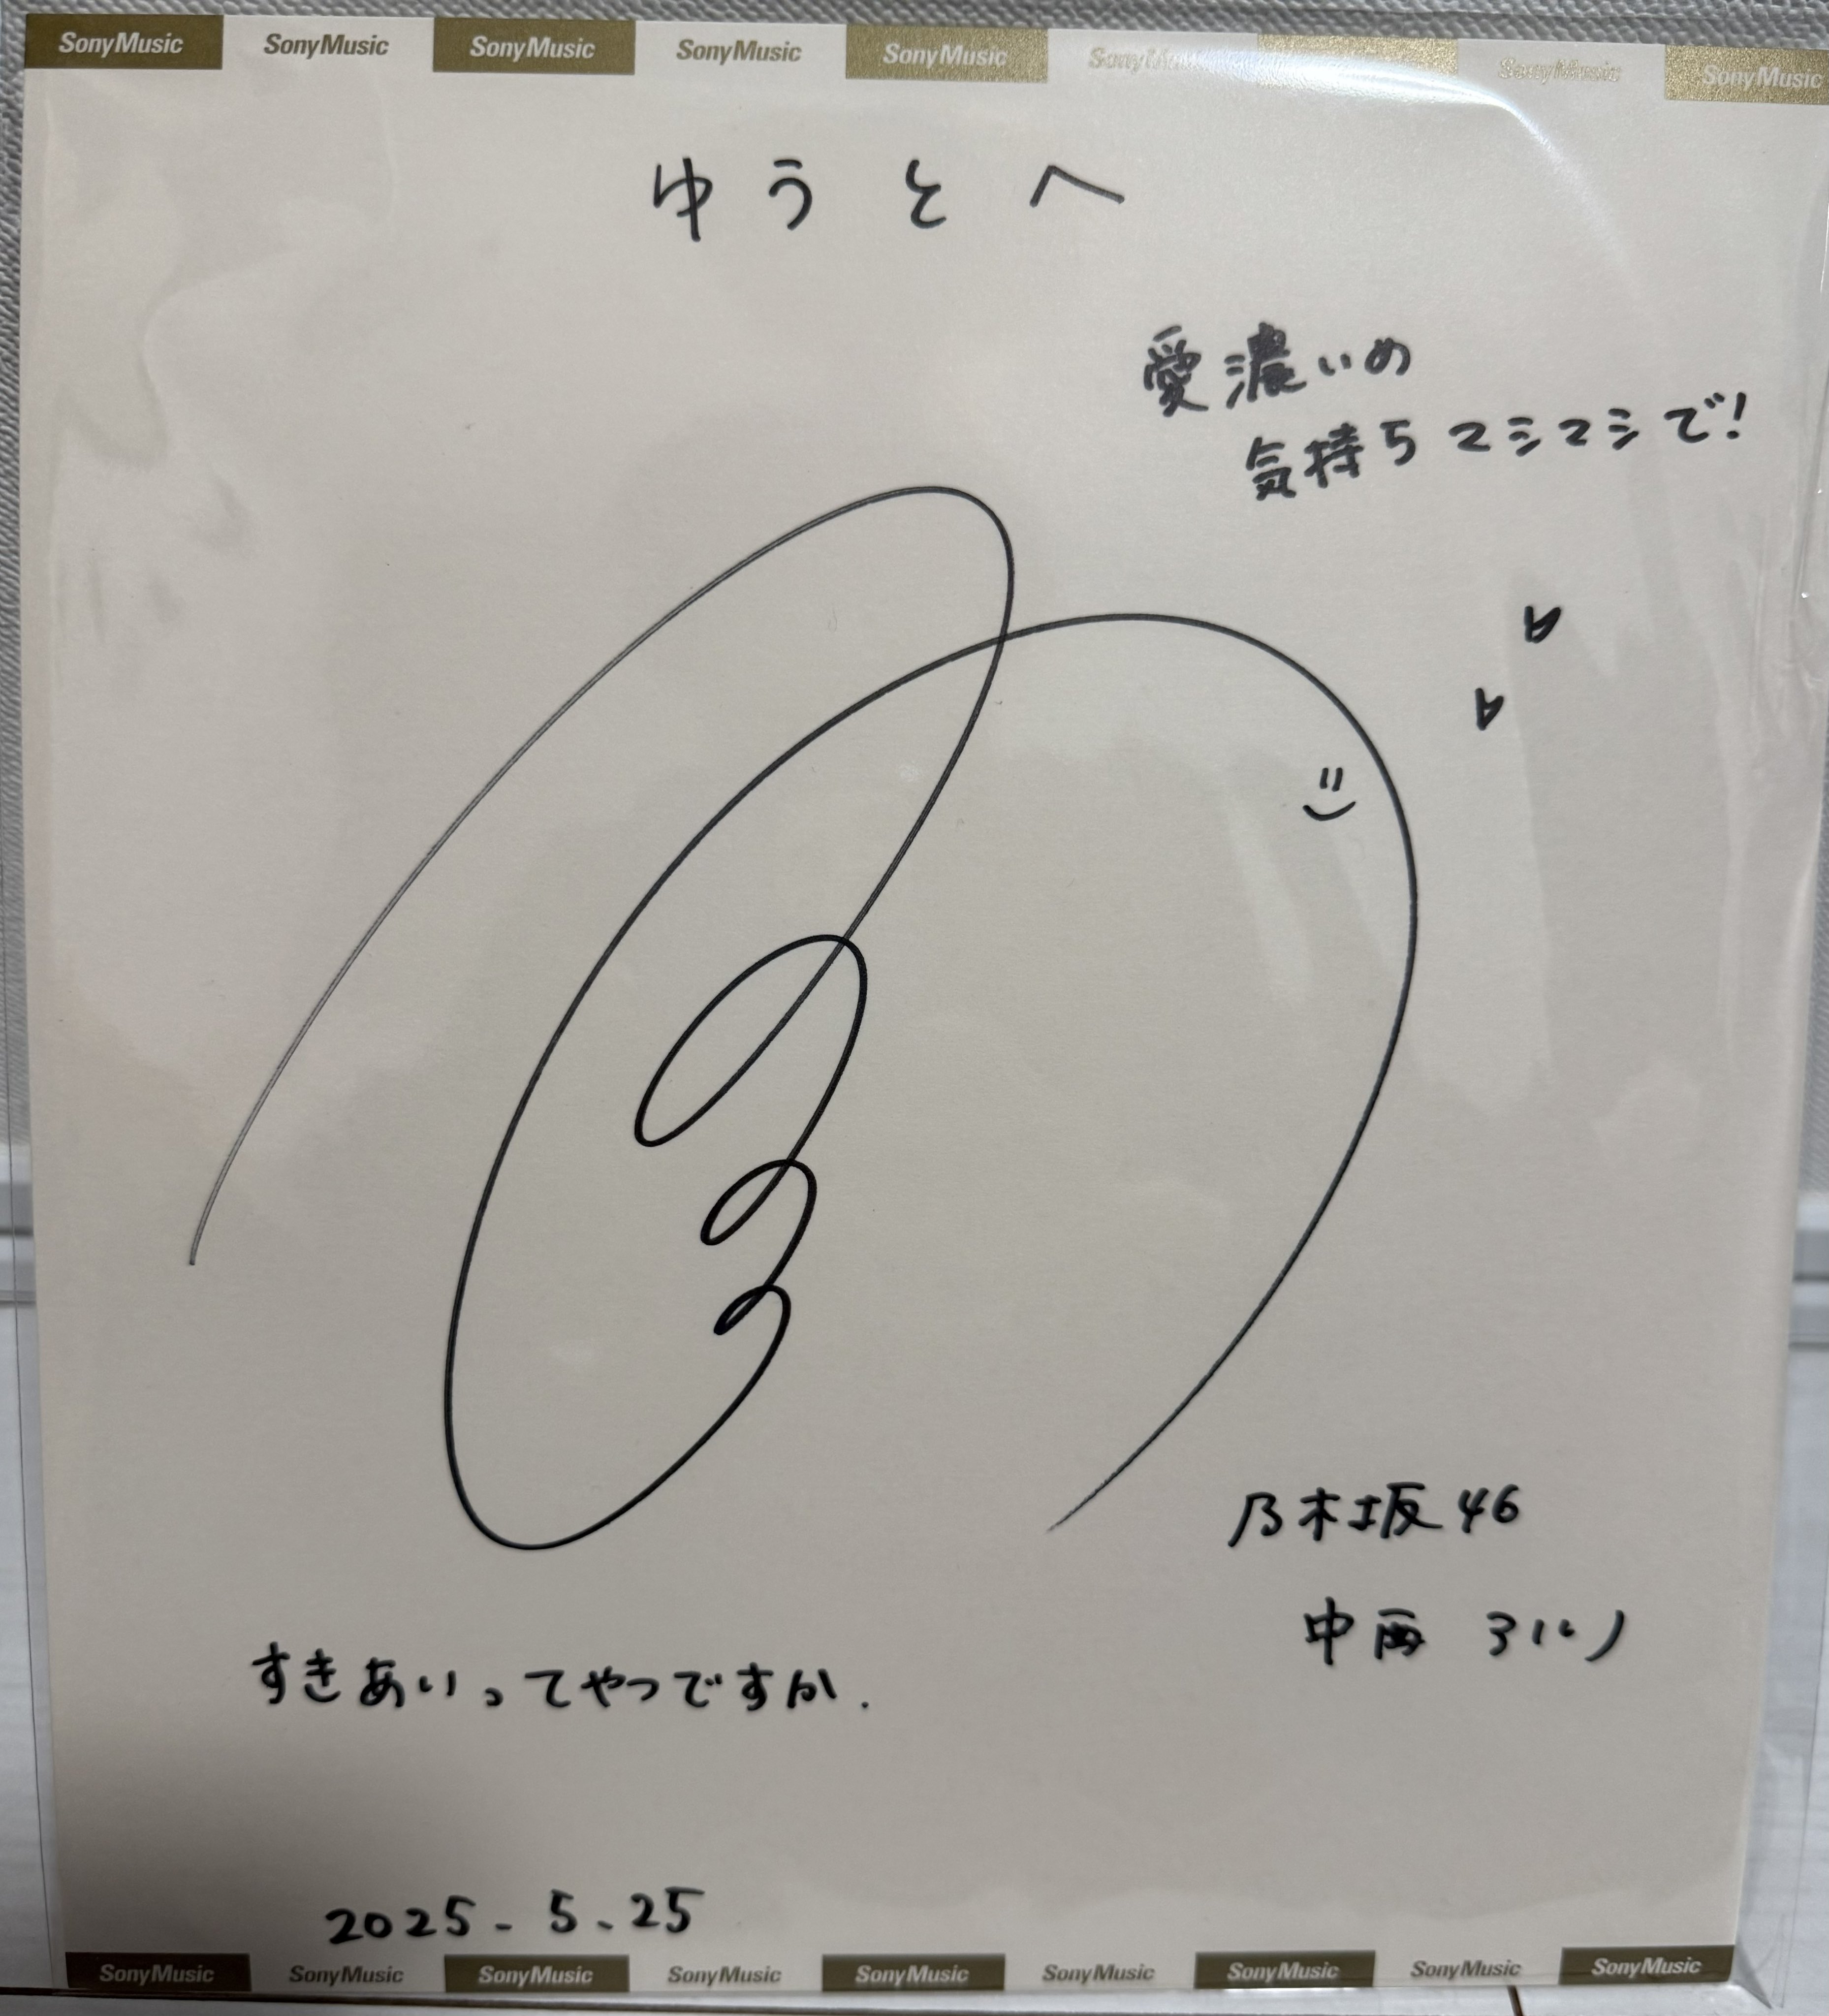 SonyMusic SonyMusic SonyMusic SonyMusic SonyMusic SonyMusic SonyMusic SonyMusic
ゆうとへ
愛濃いめ
気持ちマシマシで!
乃木坂46
中西 アルノ
すきあいってやつですか.
2025.5.25
SonyMusic SonyMusic SonyMusic SonyMusic SonyMusic SonyMusic SonyMusic SonyMusic SonyMusic